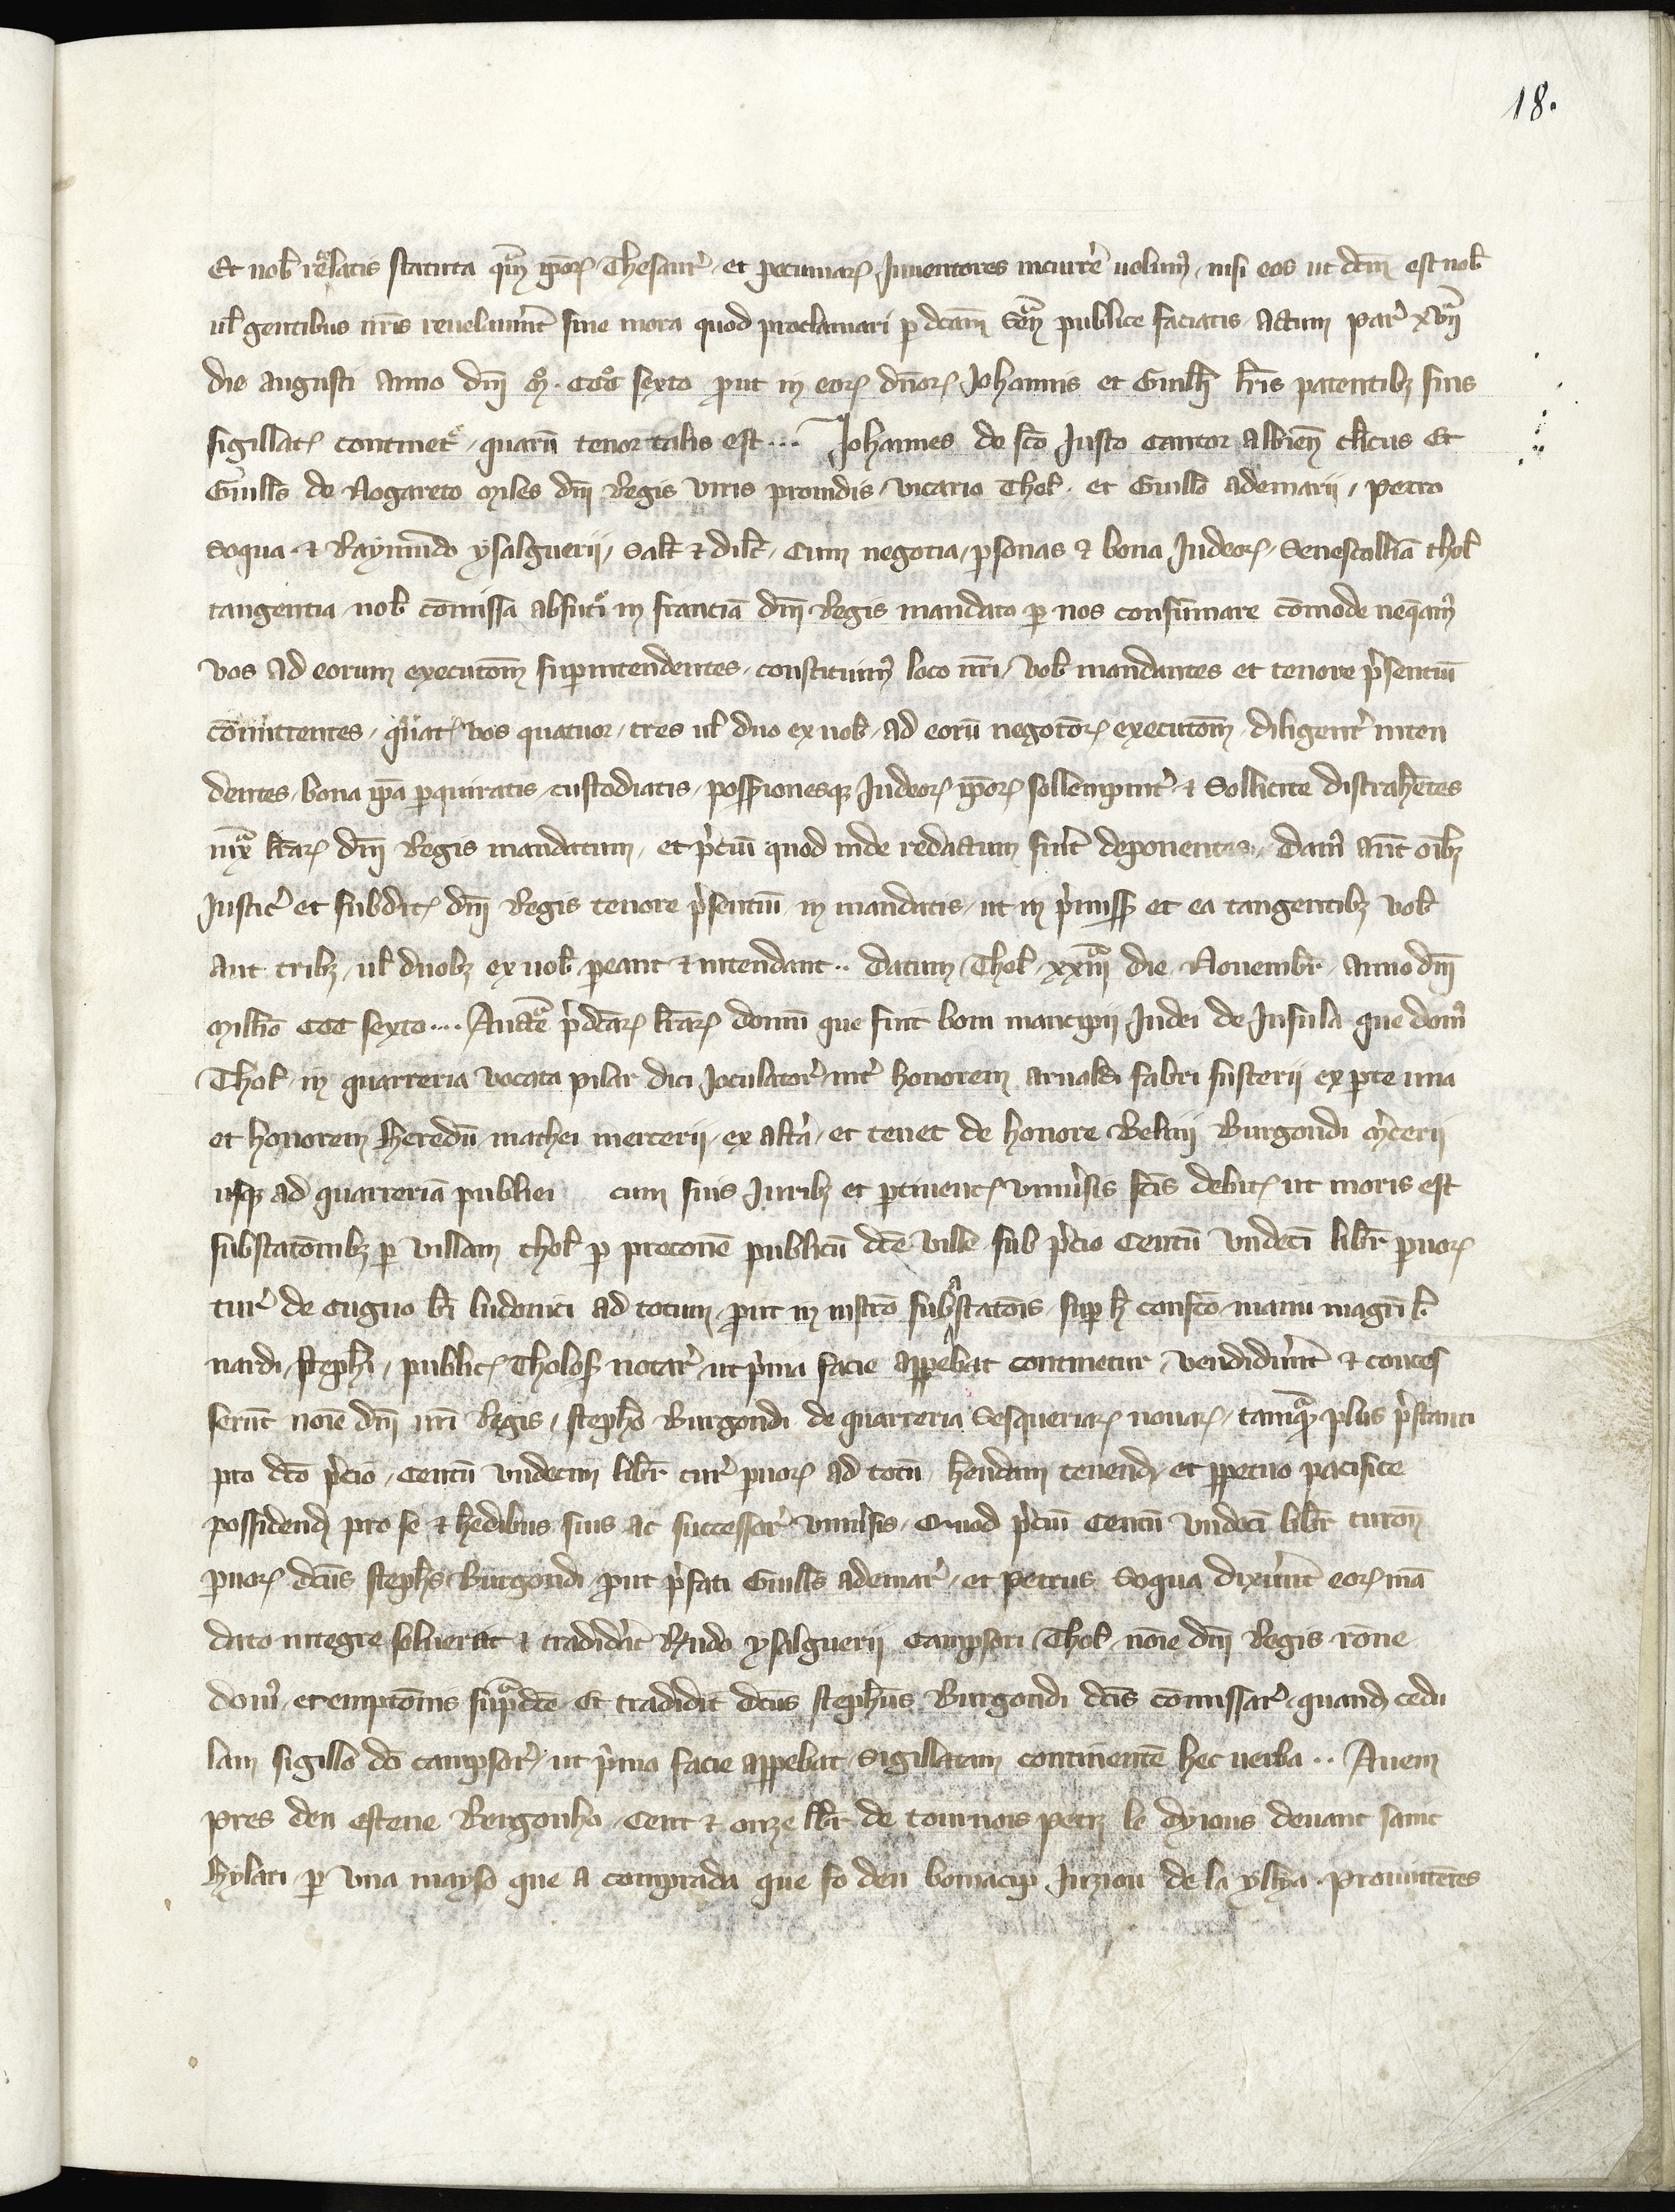 18.
Et nob̄ relatis statuta quā ip̄oꝝ Thesaur̄ et pecuniaꝝ Inuentores incurrē uolum⁹, nisi eos ut dc̄m est nob̄
ul̄ gentibus nr̄is reueluerint̄ sine mora quod proclamari p dc̄am Sen̄ publice faciatis Actum par̄ xvıȷ
die augusti anno dn̄i mº. CCCº sexto prout in eoꝝ dn̄oꝝ Johannis et Guill̄i lr̄is patentibꝫ suis
sigillatꝭ continet᷑, quarū tenor talis est... Johannes de sc̄o Justo Cantor albien̄ cl̄icus Et
Guill̄s de Nogareto Miles dn̄i Regis Viris prouidis, vicario Thol̄. et Guill̄o ademarii, Petro
Soqua & Raymundo ysalguerii, Sal̄t & dil̄c, Cum negotia, p̱sonas & bona Judeoꝝ, Senescalliā thol̄
tangentia nob̄ cōmissa absent̄ in franciā dn̄i Regis mandato p̱ nos consūmare cōmode neq̄am⁹
vos ad eorum executōm sup̱intendentes, constituim⁹ loco nr̄i, vob̄ mandantes et tenore p̄sentiū
cōmittentes, q̄uatꝭ vos quatuor, tres ul̄ duo ex uob̄, ad eorū negotōꝝ executōm, diligent̄ inten
dentes, bona ip̄a p̱quiratis, custodiatis, possessionesqꝫ Judeoꝝ ip̄oꝝ sollempnit̄ & Sollicite distrahētes
iuxᵃ lr̄aꝝ dn̄i Regis mandatum, et p̄ciū quod inde redactum fuerit deponentes, Dam⁹ aūt oīb̄ꝫ
Justic̄ et subditꝭ dn̄i Regis tenore p̄sentiū in mandatis, ut in p̄miss̄ et ea tangentibꝫ vob̄
aut tribꝫ, ul̄ duobꝫ ex uob̄ p̱eant & intendant.. Datum Thol̄ xxıȷᵃ die Nouembr̄ Anno dn̄i
Mill̄io CCC sexto.... Auctē p̄dc̄aꝝ lr̄aꝝ domū que fuit boni mancipii Judei de Insula que dom⁹
Thol̄ in quarreria vocata pilar dici Joculator̄, int̄ honorem arnaldi fabri fusterii ex p̱te una
et honorem heredū mathei mercerii, ex alt̄a, et tenet de honore Belini Burgondi m̄cerii
usqꝫ ad quarreriā publici cum suis Juribꝫ et p̱tinentꝭ vniu̇sis fc̄is debitꝭ ut moris est
substatōnibꝫ p̱ villam thol̄ p̱ preconē publicū dc̄e ville sub p̄cio Centū vndeci libr̄ p̱uoꝝ
tur̄ de Cugno b̄i ludouici ad totum, prout in inst̄ro subᵃstatōis sup̱ h̄ confc̄o manu magr̄i b̄
nardi, steph̄i, publicꝭ Tholos̄ notar̄ ut p̄ma facie app̱ebat continetur, vendiderūt & conces
serūt noīe dn̄i nr̄i Regis, steph̄o Burgondi de quarreria Sesqueriaꝝ nouaꝝ, tamqᵃꝫ plus p̄stanti
pro dc̄o p̄cio, centū vndecim libr̄ tur̄ p̱uoꝝ ad totū, h̄endam tenend̄, et p̱petuo pacifice
possidend̄ pro se & h̄edibus suis ac successor̄ vniu̇sis, Quod p̄ciū Centū vndeci libr̄ turon̄
p̱uoꝝ dc̄us steph̄s Burgondi, prout p̄fati Guill̄s ademar̄, et Petrus Soqua dixerūt eoꝝ mā
dato integre soluerat & tradidit̄ R̄ndo ysalguerii Campsori Thol̄ noīe dn̄i Regis rōne
dom⁹ et emptōnis sup̱ᵃdc̄e Et tradidit dc̄us steph̄us Burgondi dc̄is cōmissar̄ quand̄ cedu
lam sigillo dc̄i campsor̄, ut p̄ma facie app̱ebat, Sigillatam continentē hec uerba.. Auem
pres den Esteue Bergonho Cent & onze lbr̄ de tournois petz lo dyious deuant sant
hylari p̱ vna mayso que a comprada que fo den bomacip Juzıou de la ylha. promittētes